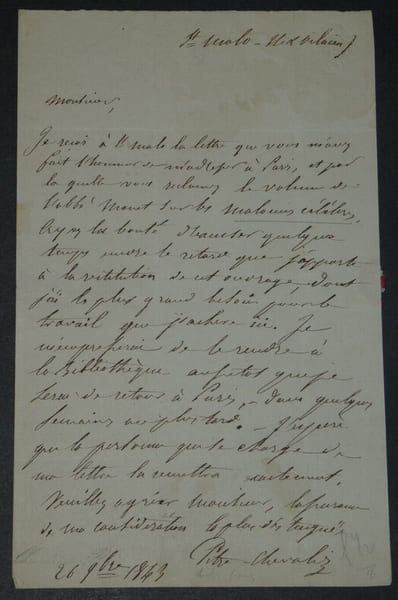 St malo - Ille & Vilaine
Monsieur,
Je reçois à St malo la lettre que vous m'avez
fait l'honneur de m'adresser à Paris, et par
laquelle vous réclamez le volume de
l'abbé Manet sur les malouins célèbres.
Ayez la bonté d'excuser quelque
temps encore le retard que j'apporte
à la restitution de cet ouvrage dont
j'ai le plus grand besoin pour le
travail que j'achève ici. Je
m'empresserai de le rendre à
la Bibliothèque aussitot que je
serai de retour à Paris, - dans quelques
semaines au plus tard. - J'espère
que la personne qui se charge de
ma lettre la remettra exactement.
Veuillez agréer monsieur, l'assurance
de ma considération la plus distinguée
Pitre-Chevalier
26 9bre 1843